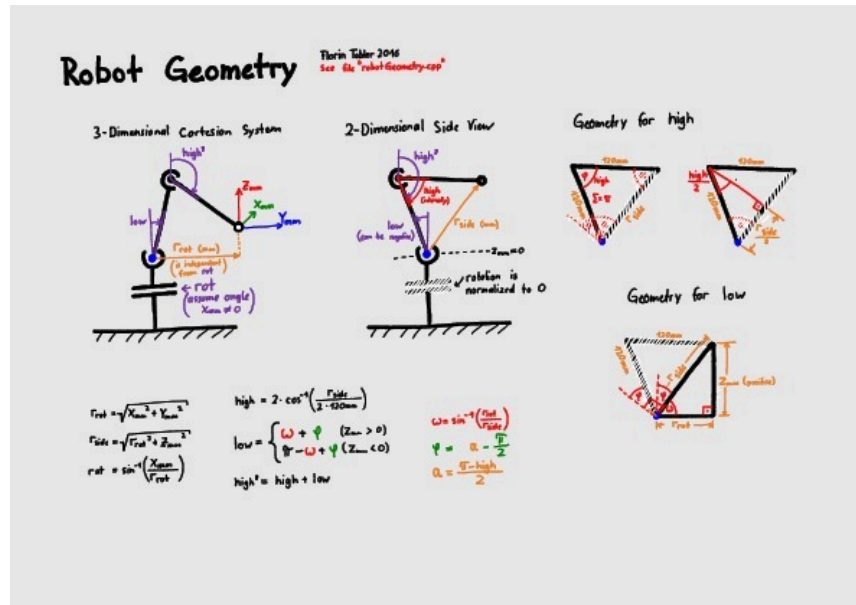 Robot Geometry
Florin Tobler 2016
See file "robotGeometry.cpp"
3-Dimensional Cartesion System
high²
low
Zmm
Xmm
Ymm
rrot (mm)
(is independent from rot)
← rot
(assume angle)
Xmm ≠ 0
2-Dimensional Side View
high²
high
(internally)
low
(can be negative)
rside (mm)
Zmm=0
rotation is
normalized to 0
Geometry for high
120mm
φ
high
120mm
Σ=π
rside
120mm
high/2
120mm
rside/2
Geometry for low
120mm
120mm
rside
Zmm (positive)
rrot
rrot = √(Xmm² + Ymm²)
rside = √(rrot² + Zmm²)
rot = sin⁻¹(Xmm/rrot)
high = 2 · cos⁻¹(rside/(2 · 120mm))
low = { ω + φ (Zmm > 0)
π - ω + φ (Zmm < 0)
high² = high + low
ω = sin⁻¹(rrot/rside)
φ = a - π/2
a = (π - high)/2